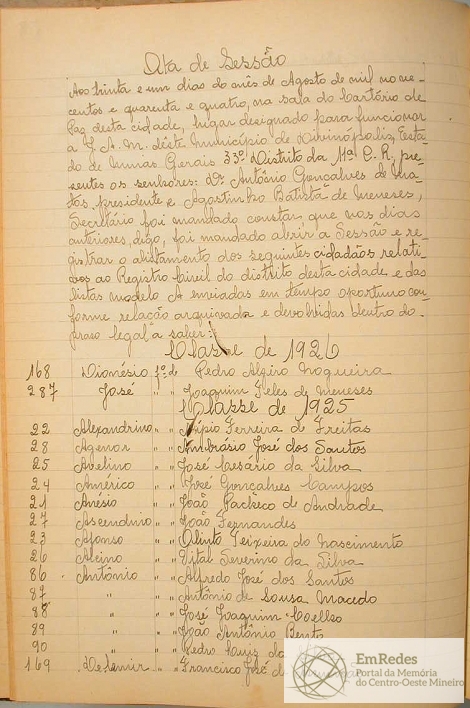 Ata de Sessão
Aos trinta e um dias do mês de Agosto de mil nove-
centos e quarenta e quatro, na sala do Cartório de
Paz desta cidade, lugar designado para funcionar
a J. A. M. dêste Município de Divinópolis, Esta-
do de Minas Gerais 33º Distrito da 11ª C. R., pre-
sentes os senhores: Dr. Antônio Gonçalves de Ma-
tos, presidente e Agostinho Batista de Meneses,
Secretário foi mandado constar que nos dias
anteriores, digo, foi mandado abrir a Sessão e re-
gistrar o alistamento dos seguintes cidadãos relati-
vos ao Registro Civil do distrito desta cidade e das
listas modelo A enviadas em tempo oportuno con-
forme relação arquivada e devolvidas dentro do
praso legal a saber:
Classe de 1926
168 Dionésio fº de Pedro Nogueira
287 José " " Joaquim Teles de Meneses
Classe de 1925
22 Alexandrino " " Ferreira de Freitas
28 Agenor " " Ambrósio José dos Santos
25 Avelino " " José Cesário da Silva
24 Américo " " José Gonçalves Campos
21 Anésio " " João Pacheco de Andrade
27 Ascendino " " João Fernandes
23 Afonso " " Olinto Teixeira do Nascimento
26 Alcino " " Vital Severino da Silva
86 Antônio " " Alfredo José dos Santos
87 " " " Antônio de Sousa Macedo
88 " " " José Joaquim Coelho
89 " " " João Antônio Bento
90 " " " Pedro Luiz
169 " " Francisco José
EmRedes
Portal da Memória
do Centro-Oeste Mineiro